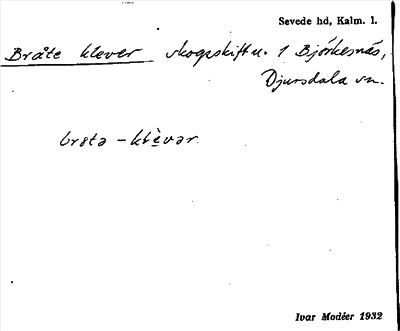 Sevede hd, Kalm. l.
Bråte klever skogsskift u. 1 Björkesnäs,
Djursdala sn.
brota - klèvar.
Ivar Modéer 1932